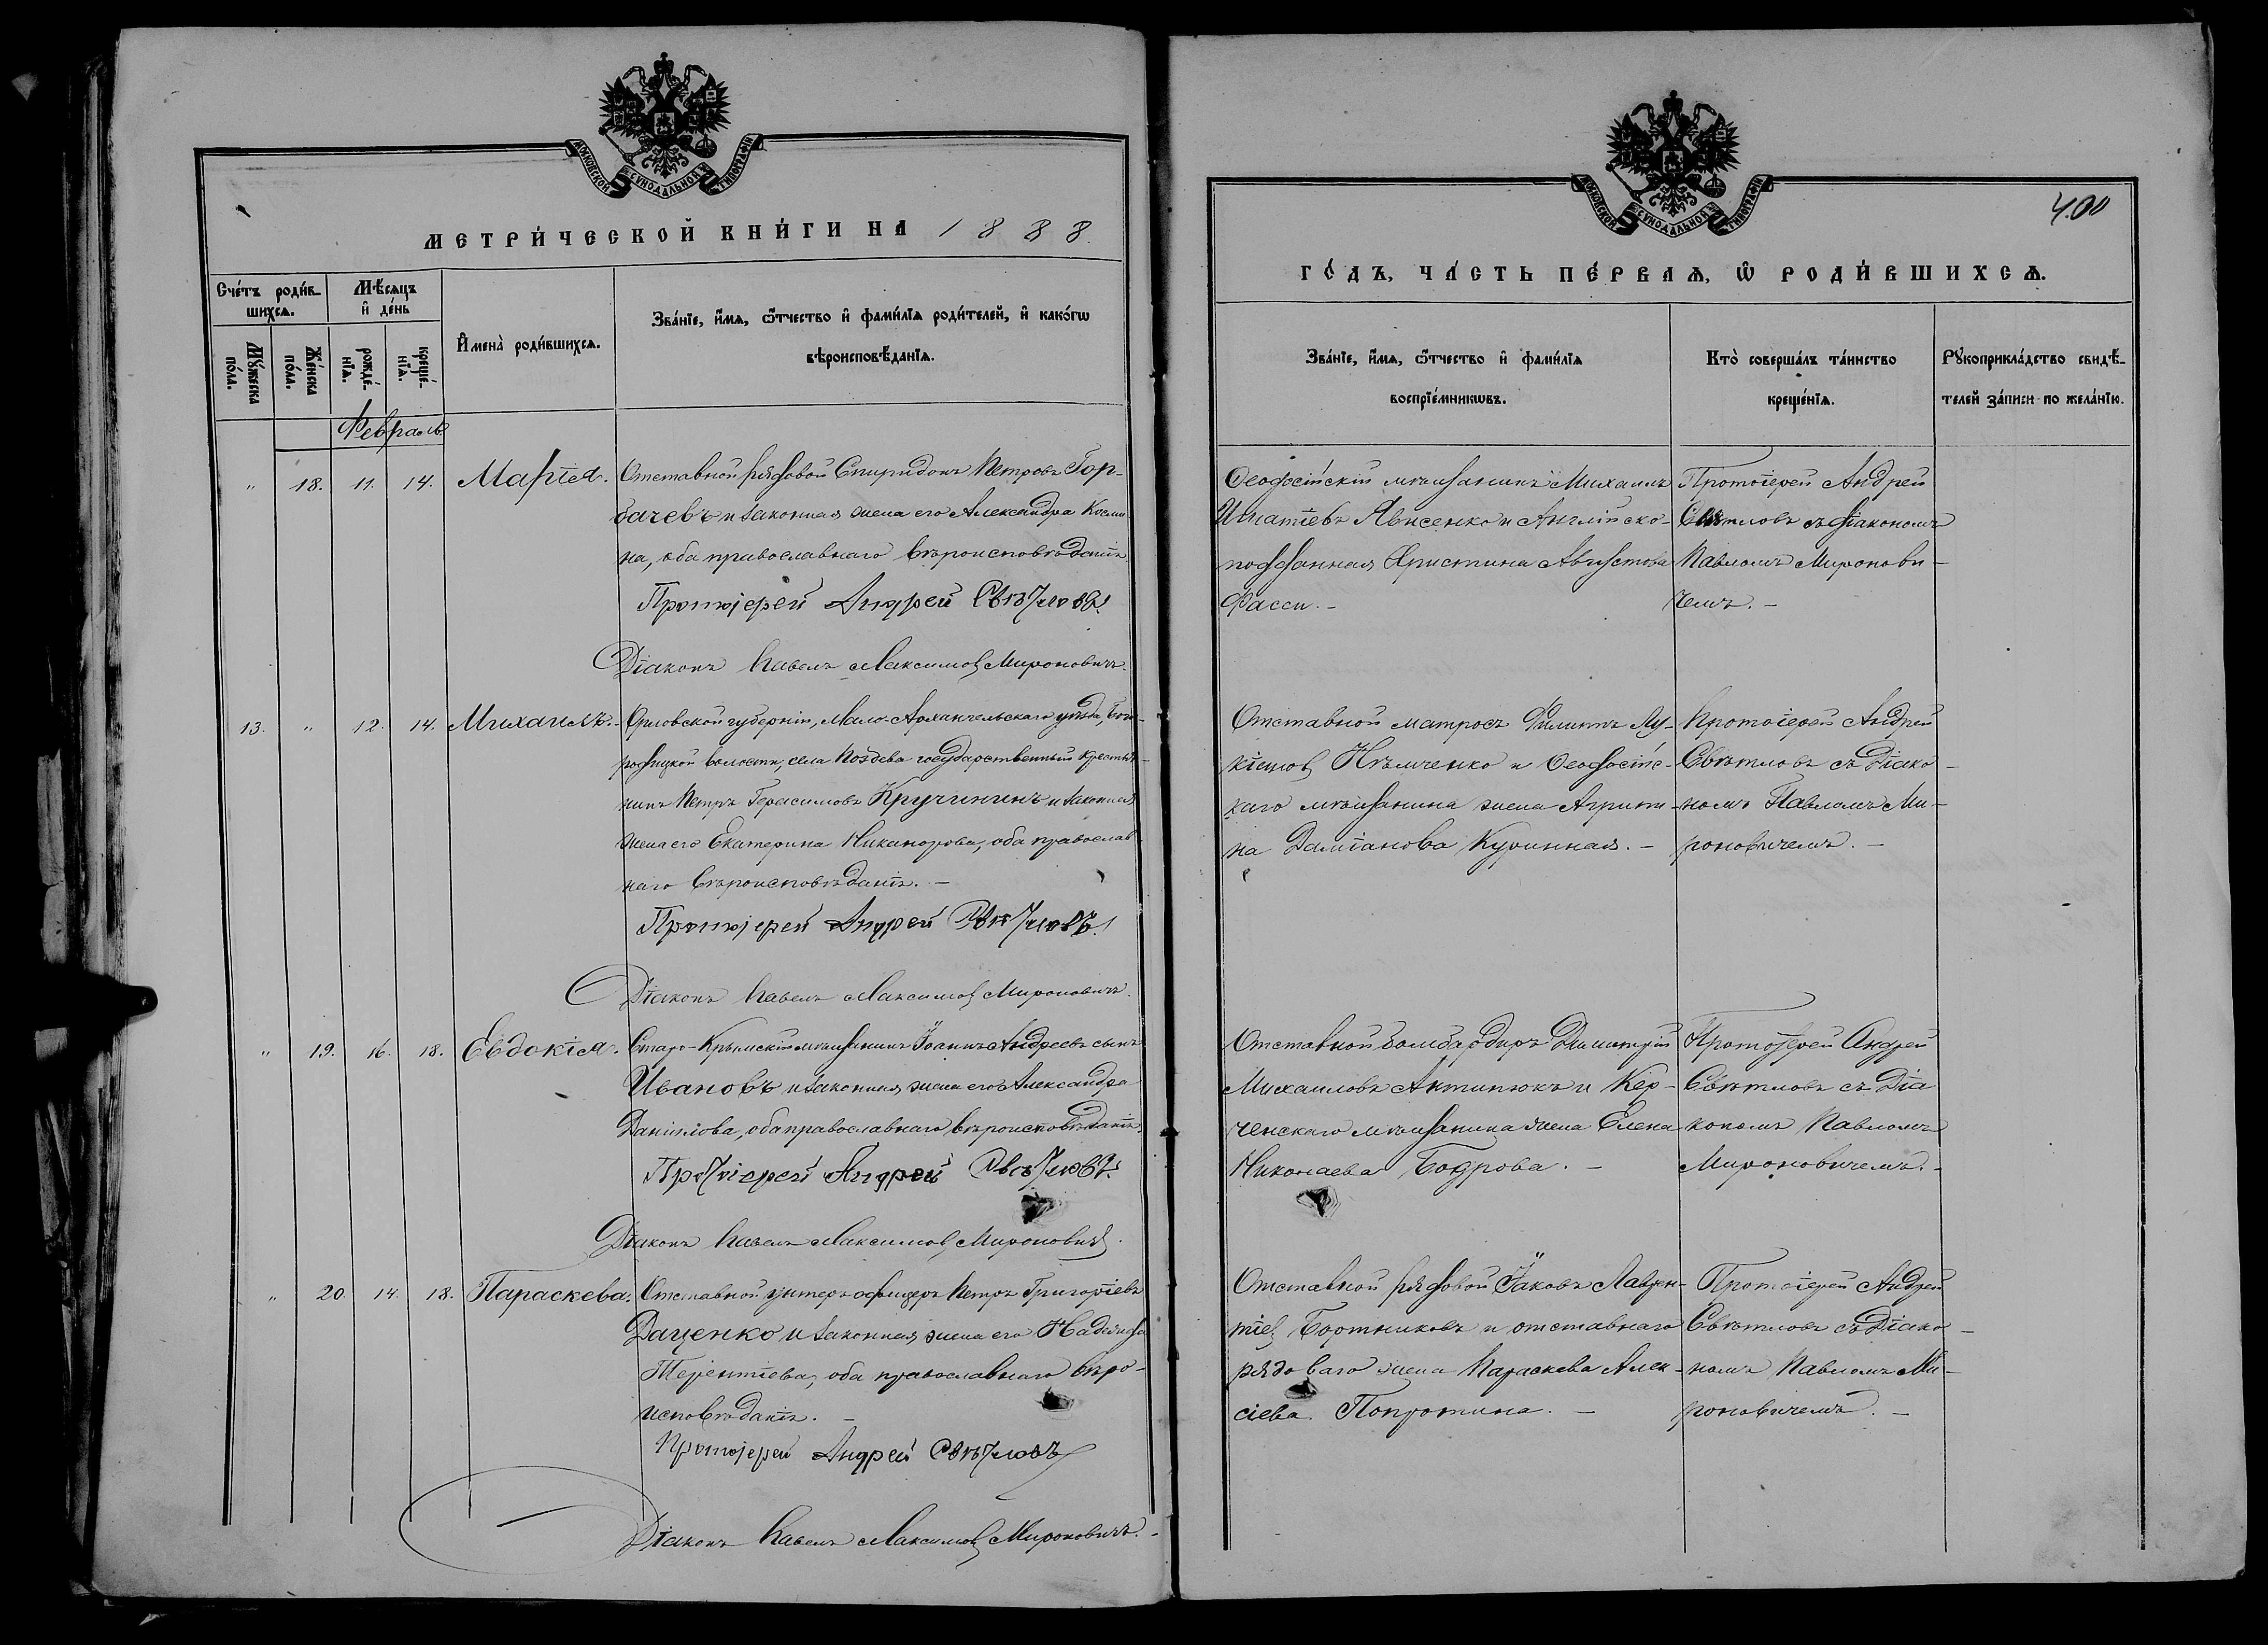 МОСКОВСКОЙ СѴНОДАЛЬНОЙ ТИПОГРАФІИ
МЕТРИ́ЧЕСКОЙ КНИ́ГИ НА 1888.
Сче́тъ роди́в-
шихсѧ.
Мѣ́сяцъ
и҆ де́нь
И҆мена̀ роди́вшихсѧ.
Зва́нїе, и҆́мѧ, ѻ҆́тчество и҆ фами́лїѧ роди́телей, и҆ како́гѡ
вѣроисповѣ́данїѧ.
Мꙋ́жеска
по́ла.
Же́нска
по́ла.
рожде́-
нїѧ.
креще́-
нїѧ.
Февраль
" 18. 11. 14. Марѳія. Отставной рядовой Спиридонъ Петровъ Гор-
бачевъ и законная жена его Александра Косми-
на, оба православнаго вѣроисповѣданія.
Протоіерей Андрей Свѣтловъ.
Діаконъ Павелъ Максимовъ Мироновичъ.
13. " 12. 14. Михаилъ. Орловской губерніи, Мало-Архангельскаго уѣзда, Бого-
родицкой волости, села Поздева государственный крестья-
нинъ Петръ Герасимовъ Кручининъ и законная
жена его Екатерина Никанорова, оба православ-
наго вѣроисповѣданія.
Протоіерей Андрей Свѣтловъ.
Діаконъ Павелъ Максимовъ Мироновичъ.
" 19. 16. 18. Евдокія. Старо-Крымскій мѣщанинъ Іоаннъ Андреевъ сынъ
Ивановъ и законная жена его Александра
Даніилова, оба православнаго вѣроисповѣданія.
Протоіерей Андрей Свѣтловъ.
Діаконъ Павелъ Максимовъ Мироновичъ.
" 20. 14. 18. Параскева. Отставной унтеръ-офицеръ Петръ Григоріевъ
Даценко и законная жена его Надежда
Терентіева, оба православнаго вѣро-
исповѣданія.
Протоіерей Андрей Свѣтловъ
Діаконъ Павелъ Максимовъ Мироновичъ.
МОСКОВСКОЙ СѴНОДАЛЬНОЙ ТИПОГРАФІИ
400
ГО́ДЪ, ЧА́СТЬ ПЕ́РВАѦ, Ѡ҆ РОДИ́ВШИХСѦ.
Зва́нїе, и҆́мѧ, ѻ҆́тчество и҆ фами́лїѧ
воспрїе́мникѡвъ.
Кто̀ соверша́лъ та́инство
креще́нїѧ.
Рꙋкоприкла́дство свидѣ́-
телей за́писи по жела́нїю.
Ѳеодосійскій мѣщанинъ Михаилъ
Игнатіевъ Явисенко и Англійско-
подданная Христина Августова
Фасси.
Протоіерей Андрей
Свѣтловъ съ діакономъ
Павломъ Миронови-
чемъ.
Отставной матросъ Филиппъ Лу-
кіановъ Нѣмченко и Ѳеодосійс-
каго мѣщанина жена Агрипи-
на Даміанова Куринная.
Протоіерей Андрей
Свѣтловъ съ Діако-
номъ Павломъ Ми-
роновичемъ.
Отставной бомбардиръ Димитрій
Михаиловъ Антипюкъ и Кер-
ченскаго мѣщанина жена Елена
Николаева Бодрова.
Протоіерей Андрей
Свѣтловъ съ Діа
кономъ Павломъ
Мироновичемъ.
Отставной рядовой Іаковъ Лаврен-
тіевъ Бортниковъ и отставнаго
рядоваго жена Параскева Алек-
сіева Попротина.
Протоіерей Андрей
Свѣтловъ съ Діако-
номъ Павломъ Ми-
роновичемъ.